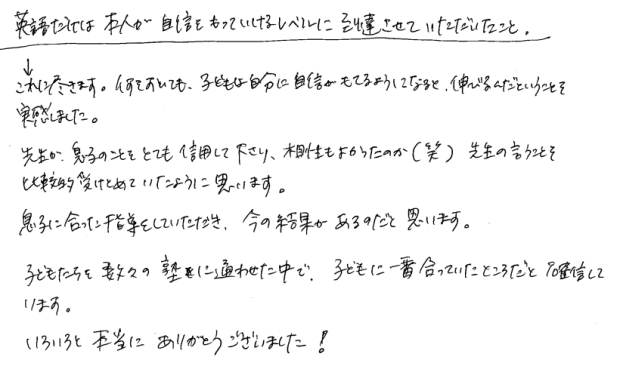 英語だけは本人が自信をもっていけるレベルに到達させていただいたこと。
↓
これに尽きます。何をおいても、子どもは自分に自信がもてるようになると、伸びるんだということを
実感しました。
先生が、息子のことをとても信用して下さり、相性もよかったのか(笑) 先生の言うことを
比較的受けとめていたように思います。
息子に合った指導をしていただき、今の結果があるのだと思います。
子どもたちを数々の塾に通わせた中で、子どもに一番合っていたところだと確信して
います。
いろいろと本当にありがとうございました!